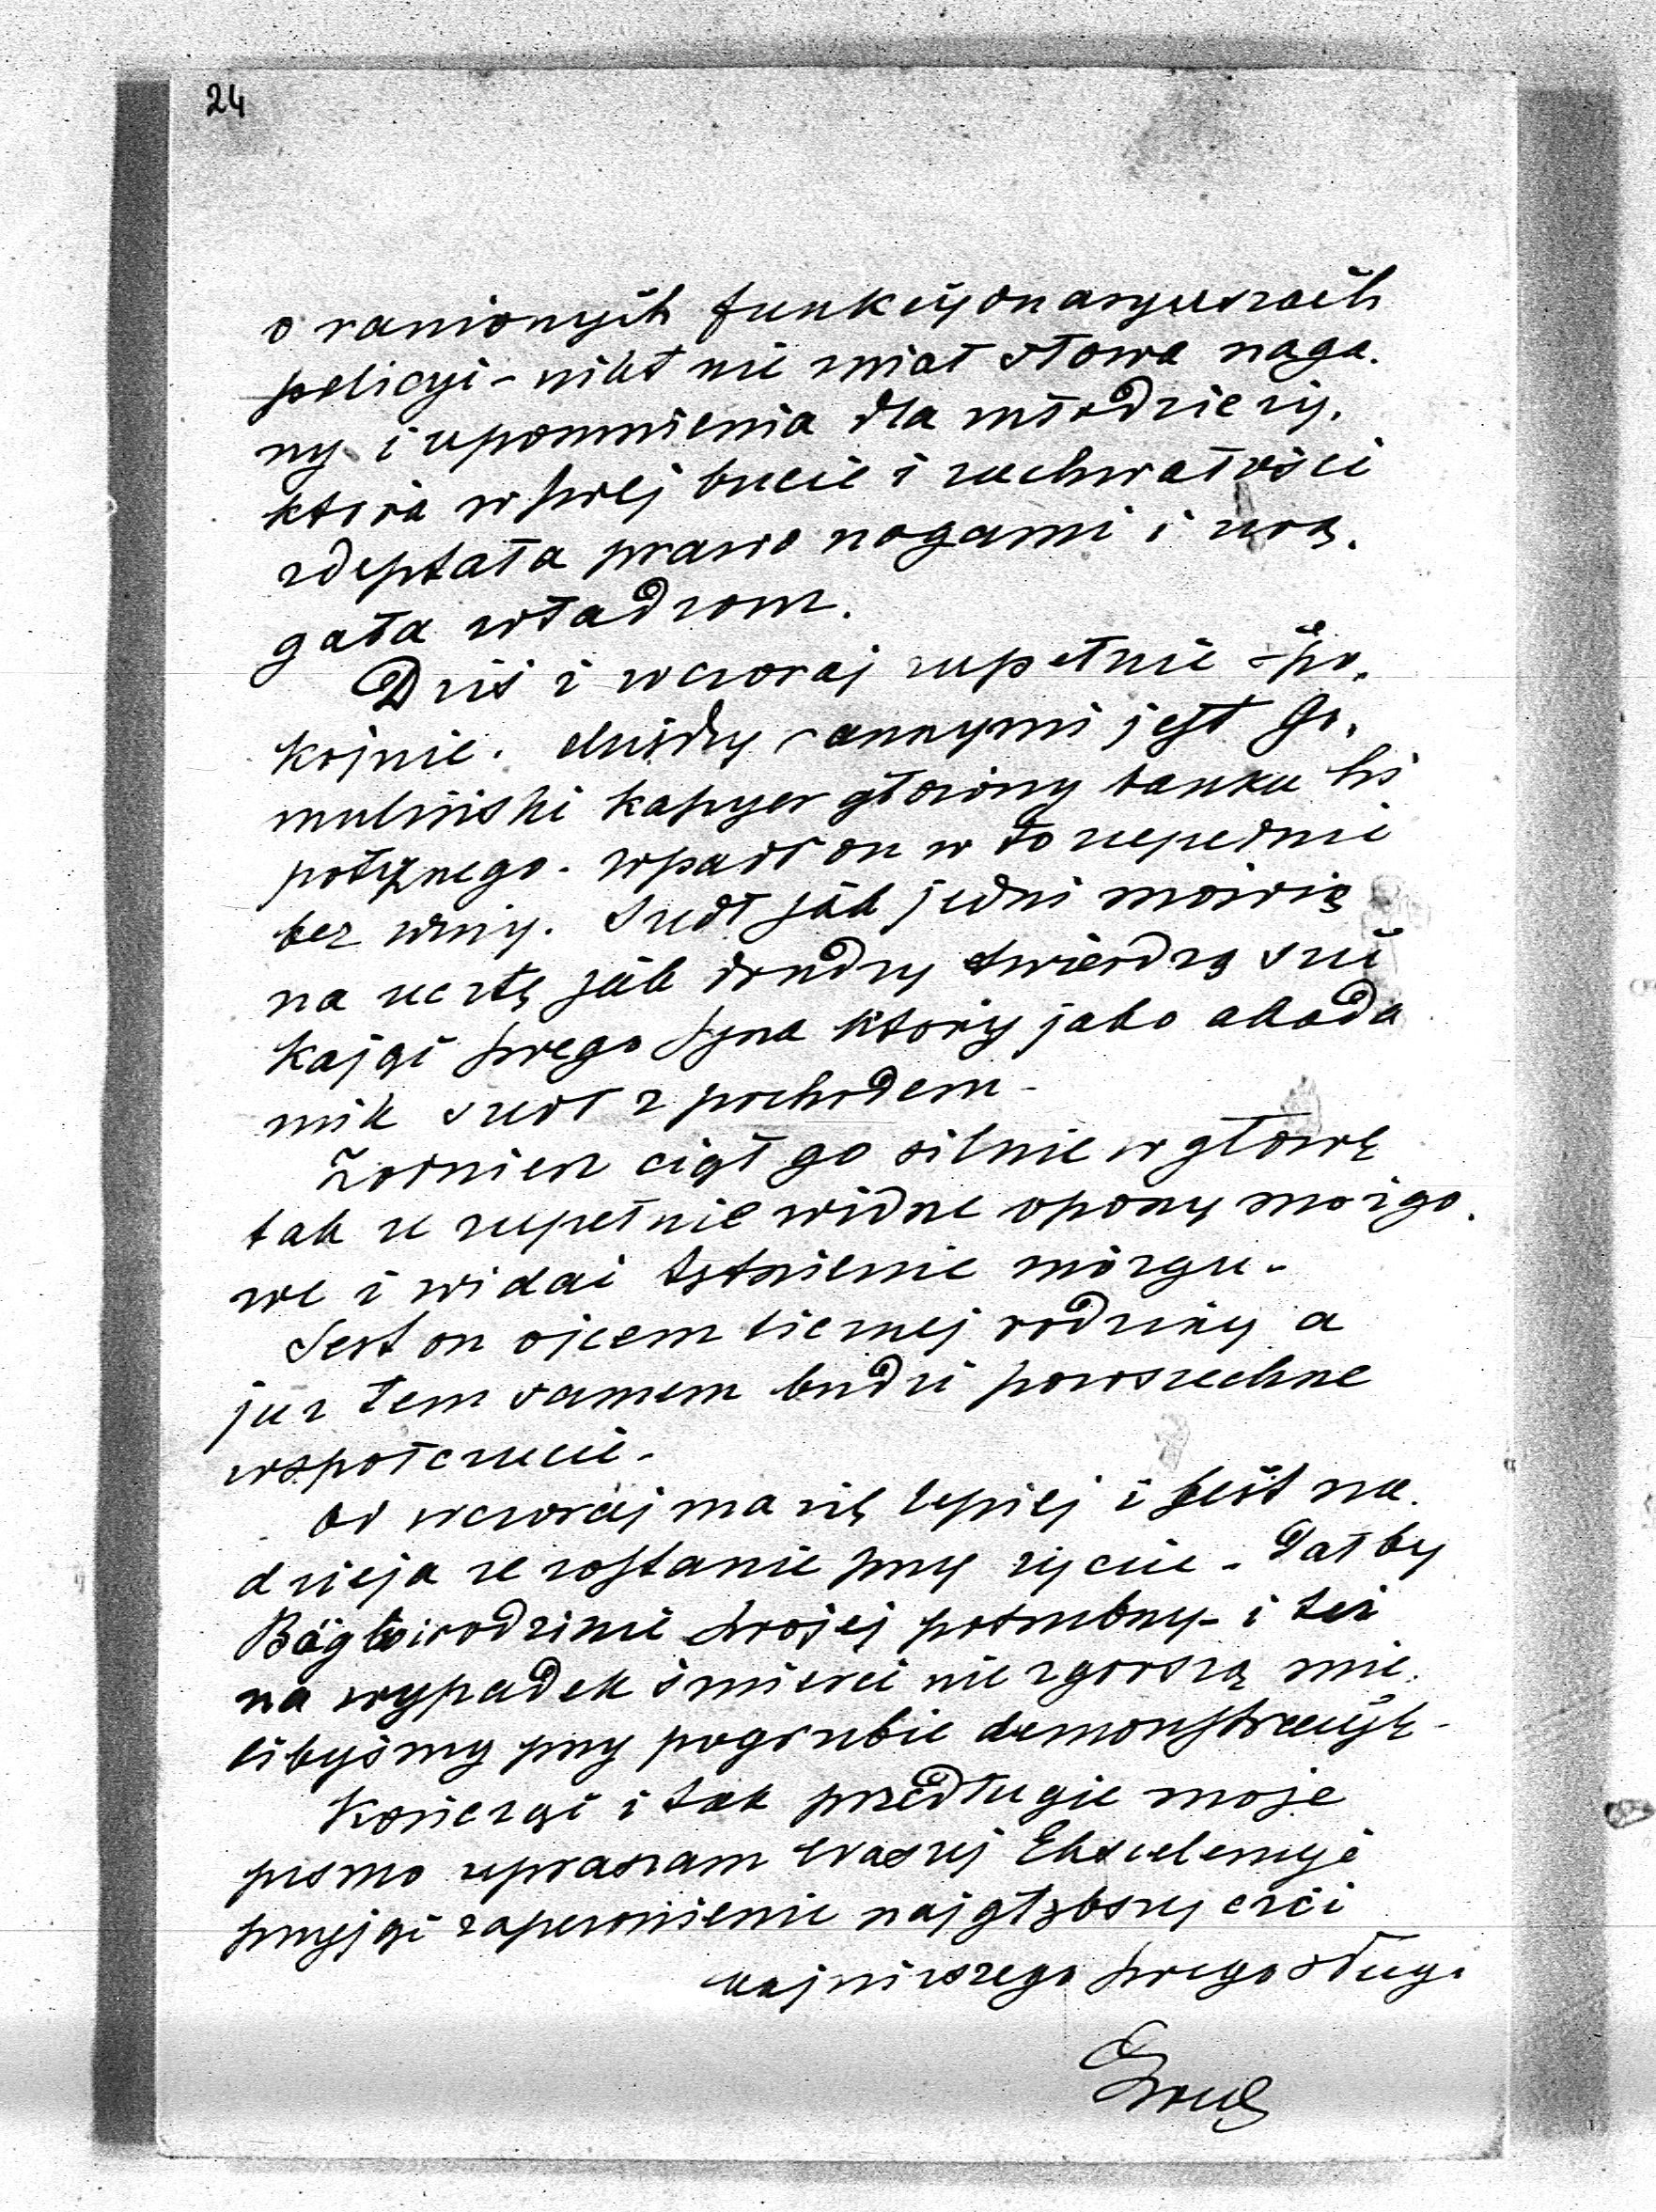 24
o ranionych funkcyonaryuszach
policyi - nikt nie miał słowa naga-
ny i upomnienia dla młodzieży,
która w swej bucie i zuchwałości
zdeptała prawo nogami i urą-
gała władzom.
Dziś i wczoraj zupełnie spo-
kojnie. Między rannymi jest Go-
muliński kasyer główny banku hi
potecznego. Wpadł on w to zupełnie
bez winy. Szedł jak jedni mówią
na ucztę jak drudzy twierdzą szu
kając swego syna który jako akade
mik szedł z pochodem -
Żołnierz ciął go silnie w głowę
tak że zupełnie widne opony mózgo-
we i widać tętnienie mózgu -
Jest on ojcem licznej rodziny a
już tem samem budzi powszechne
współczucie -
Od wczoraj ma się lepiej i jest na-
dzieja że zostanie przy życiu - Dałby
Bóg bo i rodzinie swojej potrzebny - i też
na wypadek śmierci nie zgorszą mie-
libyśmy przy pogrzebie demonstracyę -
Kończąc i tak przedługie moje
pismo upraszam Waszej Ekscelencyi
przyjąć zapewnienie najgłębszej czci
najniższego swego sługi